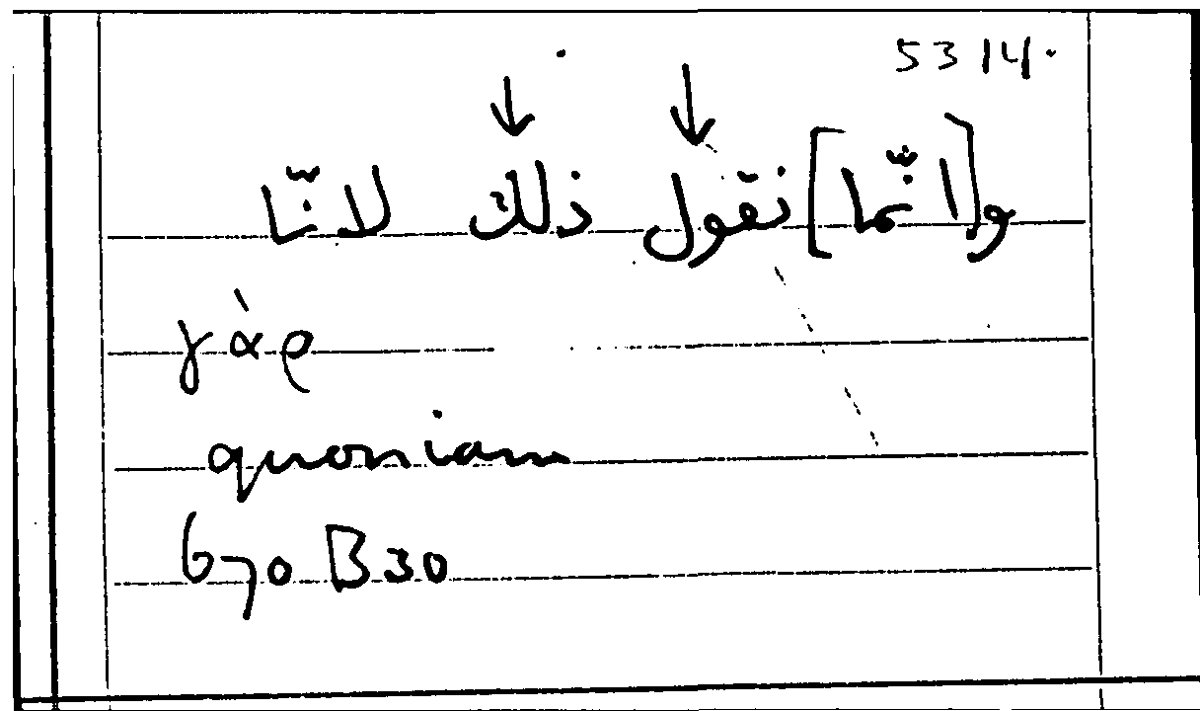 5314.
و[انّما] نقول ذلك لانّا
γὰρ
quoniam
670 B 30